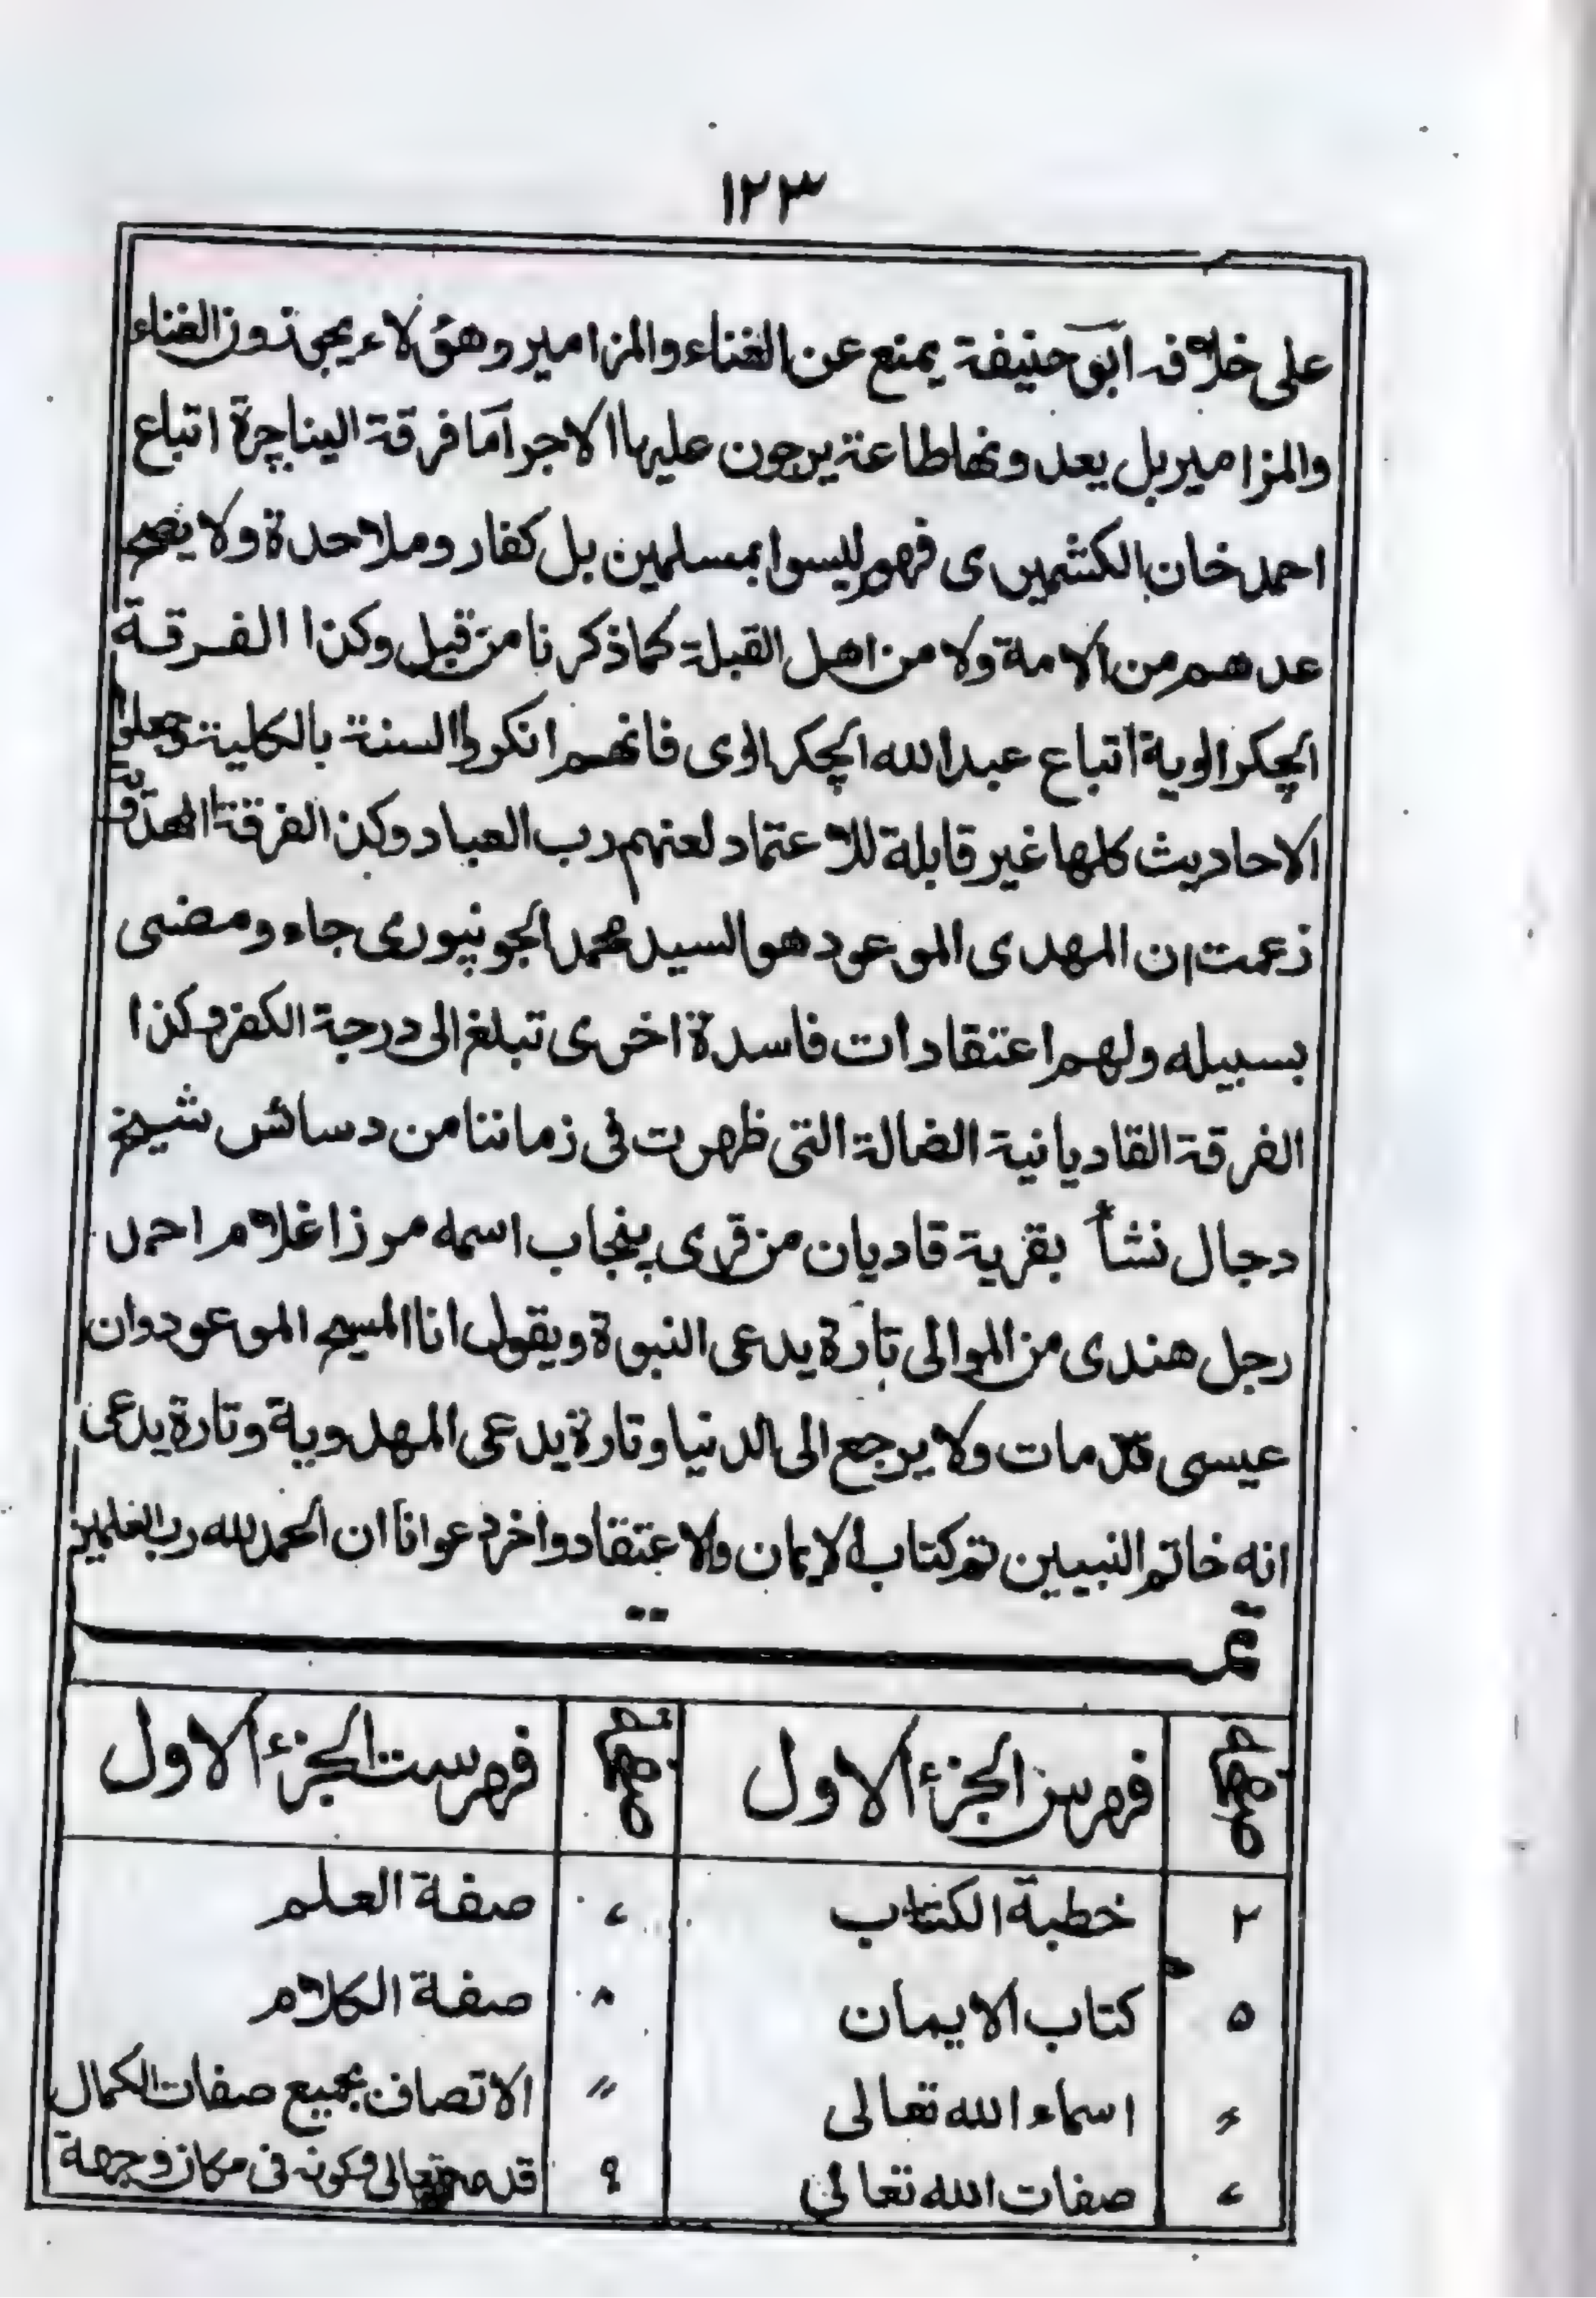 ١٢٣
على خلافه ابو حنيفة يمنع عن الغناء والمزامير وهؤلاء يجوزون الغناء
والمزامير بل يعدونها طاعة يرجون عليها الاجر اما فرقة اليناچرة اتباع
احمد خان الكشميرى فهم ليسوا بمسلمين بل كفار وملاحدة ولا يصح
عدهم من الامة ولا من اهل القبلة كما ذكرنا من قبل وكذا الفرقة
الچكرالوية اتباع عبد الله الچكرالوى فانهم انكروا السنة بالكلية وجعلوا
الاحاديث كلها غير قابلة للاعتماد لعنهم رب العباد وكذا الفرقة المهدوية
زعمت ان المهدى الموعود هو السيد محمد الجونپورى جاء ومضى
بسبيله ولهم اعتقادات فاسدة اخرى تبلغ الى درجة الكفر وكذا
الفرقة القاديانية الضالة التى ظهرت فى زماننا من دسائس شيخ
دجال نشأ بقرية قاديان من قرى پنجاب اسمه مرزا غلام احمد
رجل هندى من الموالى تارة يدعى النبوة ويقول انا المسيح الموعود وان
عيسى قد مات ولا يرجع الى الدنيا وتارة يدعى المهدوية وتارة يدعى
انه خاتم النبيين تم كتاب الايمان والاعتقاد واخر دعوانا ان الحمد لله رب العلمين
تم
صفحه فهرس الجزء الاول صفحه فهرست الجزء الاول
٢ خطبة الكتاب ٧ صفة العلم
٥ كتاب الايمان ٨ صفة الكلام
٦ اسماء الله تعالى 〃 الاتصاف بجميع صفات الكمال
٧ صفات الله تعالى ٩ قدمه تعالى وكونه فى مكان وجهة